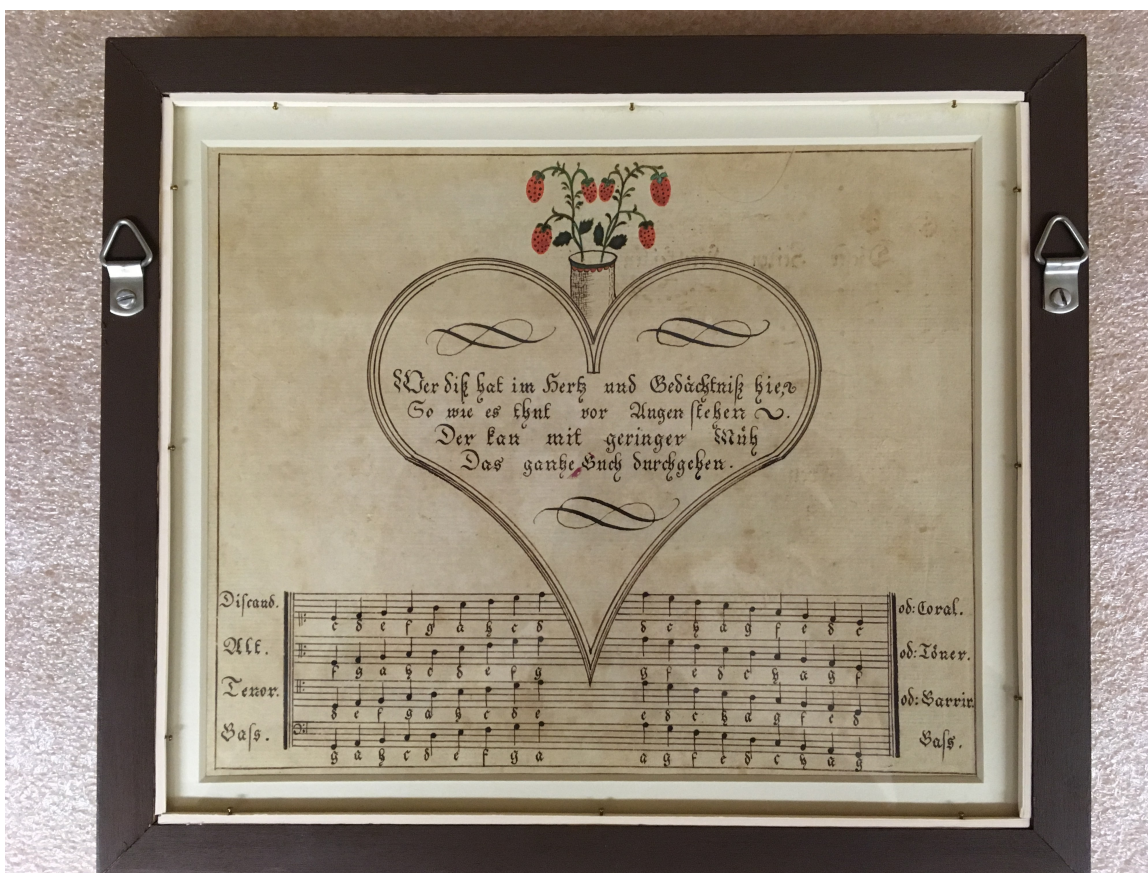 Wer diß hat im Hertz und Gedächtniß hier
So wie es thut vor Augen stehen.
Der kan mit geringer Müh
Das gantze Buch durchgehen.
Discand. c d e f g a h c d d c h a g f e d c od: Coral.
Alt. f g a h c d e f g g f e d c h a g f od: Töner.
Tenor. d e f g a h c d e e d c h a g f e d od: Barrir.
Bass. g a h c d e f g a a g f e d c h a g Bass.